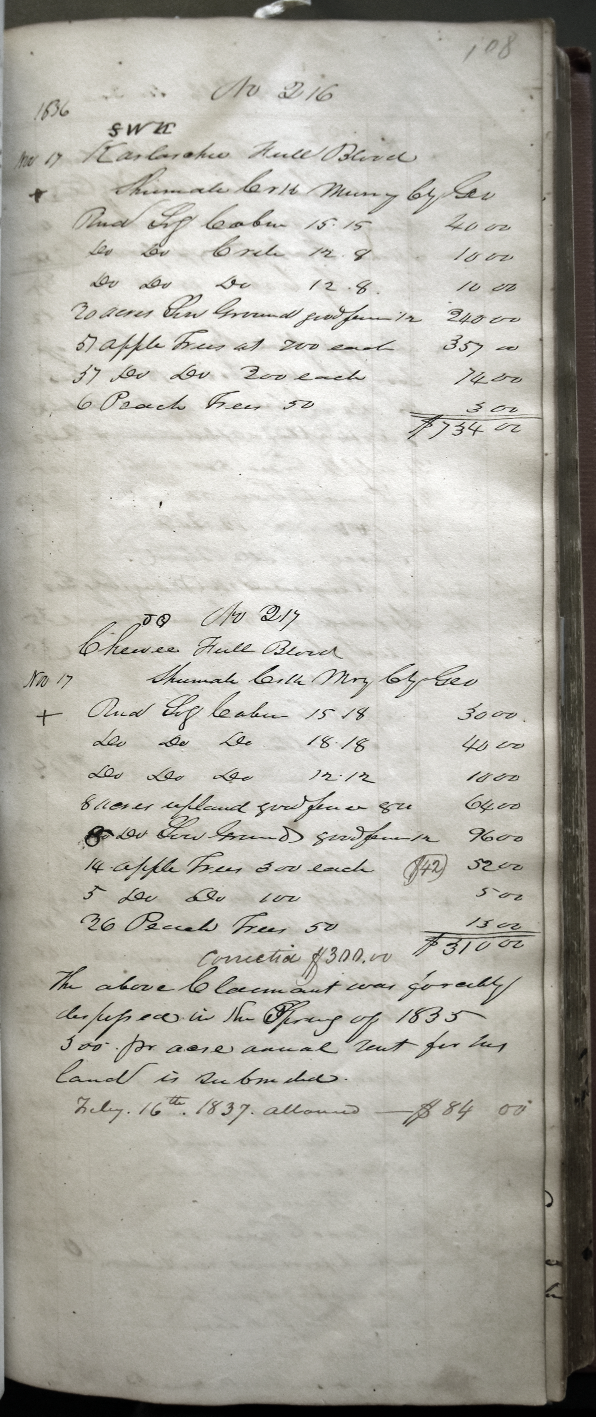 108
No 216
1836
SWK
Nov 17 Full Blood
+ Shumate Crk Murry Cty Geo
Rnd Log Cabin 15.15 40 00
Do Do Crib 12.8 10 00
Do Do Do 12.8. 10 00
20 acres Low Ground good fence 12 240 00
51 apple Trees at 700 each 357 00
37 Do Do 200 each 74 00
6 Peach Trees 50 3 00
$734 00
No 217
Chewee Full Blood
Nov 17 Shumate Crk Mry Cty Geo
+ Rnd Log Cabin 15.18 30 00
Do Do Do 18.18 40 00
Do Do Do 12.12 10 00
8 acres upland good fence 800 64 00
8 Do Low Ground good fence 12 96 00
14 apple Trees 300 each ($42) 52 00
5 Do Do 100 5 00
26 Peach Trees 50 13 00
corrected $300.00 $310 00
The above Claimant was forceably
in the Spring of 1835
300 pr acre annual rent for his
land is
Feby. 16th. 1837. allowed — $84 00